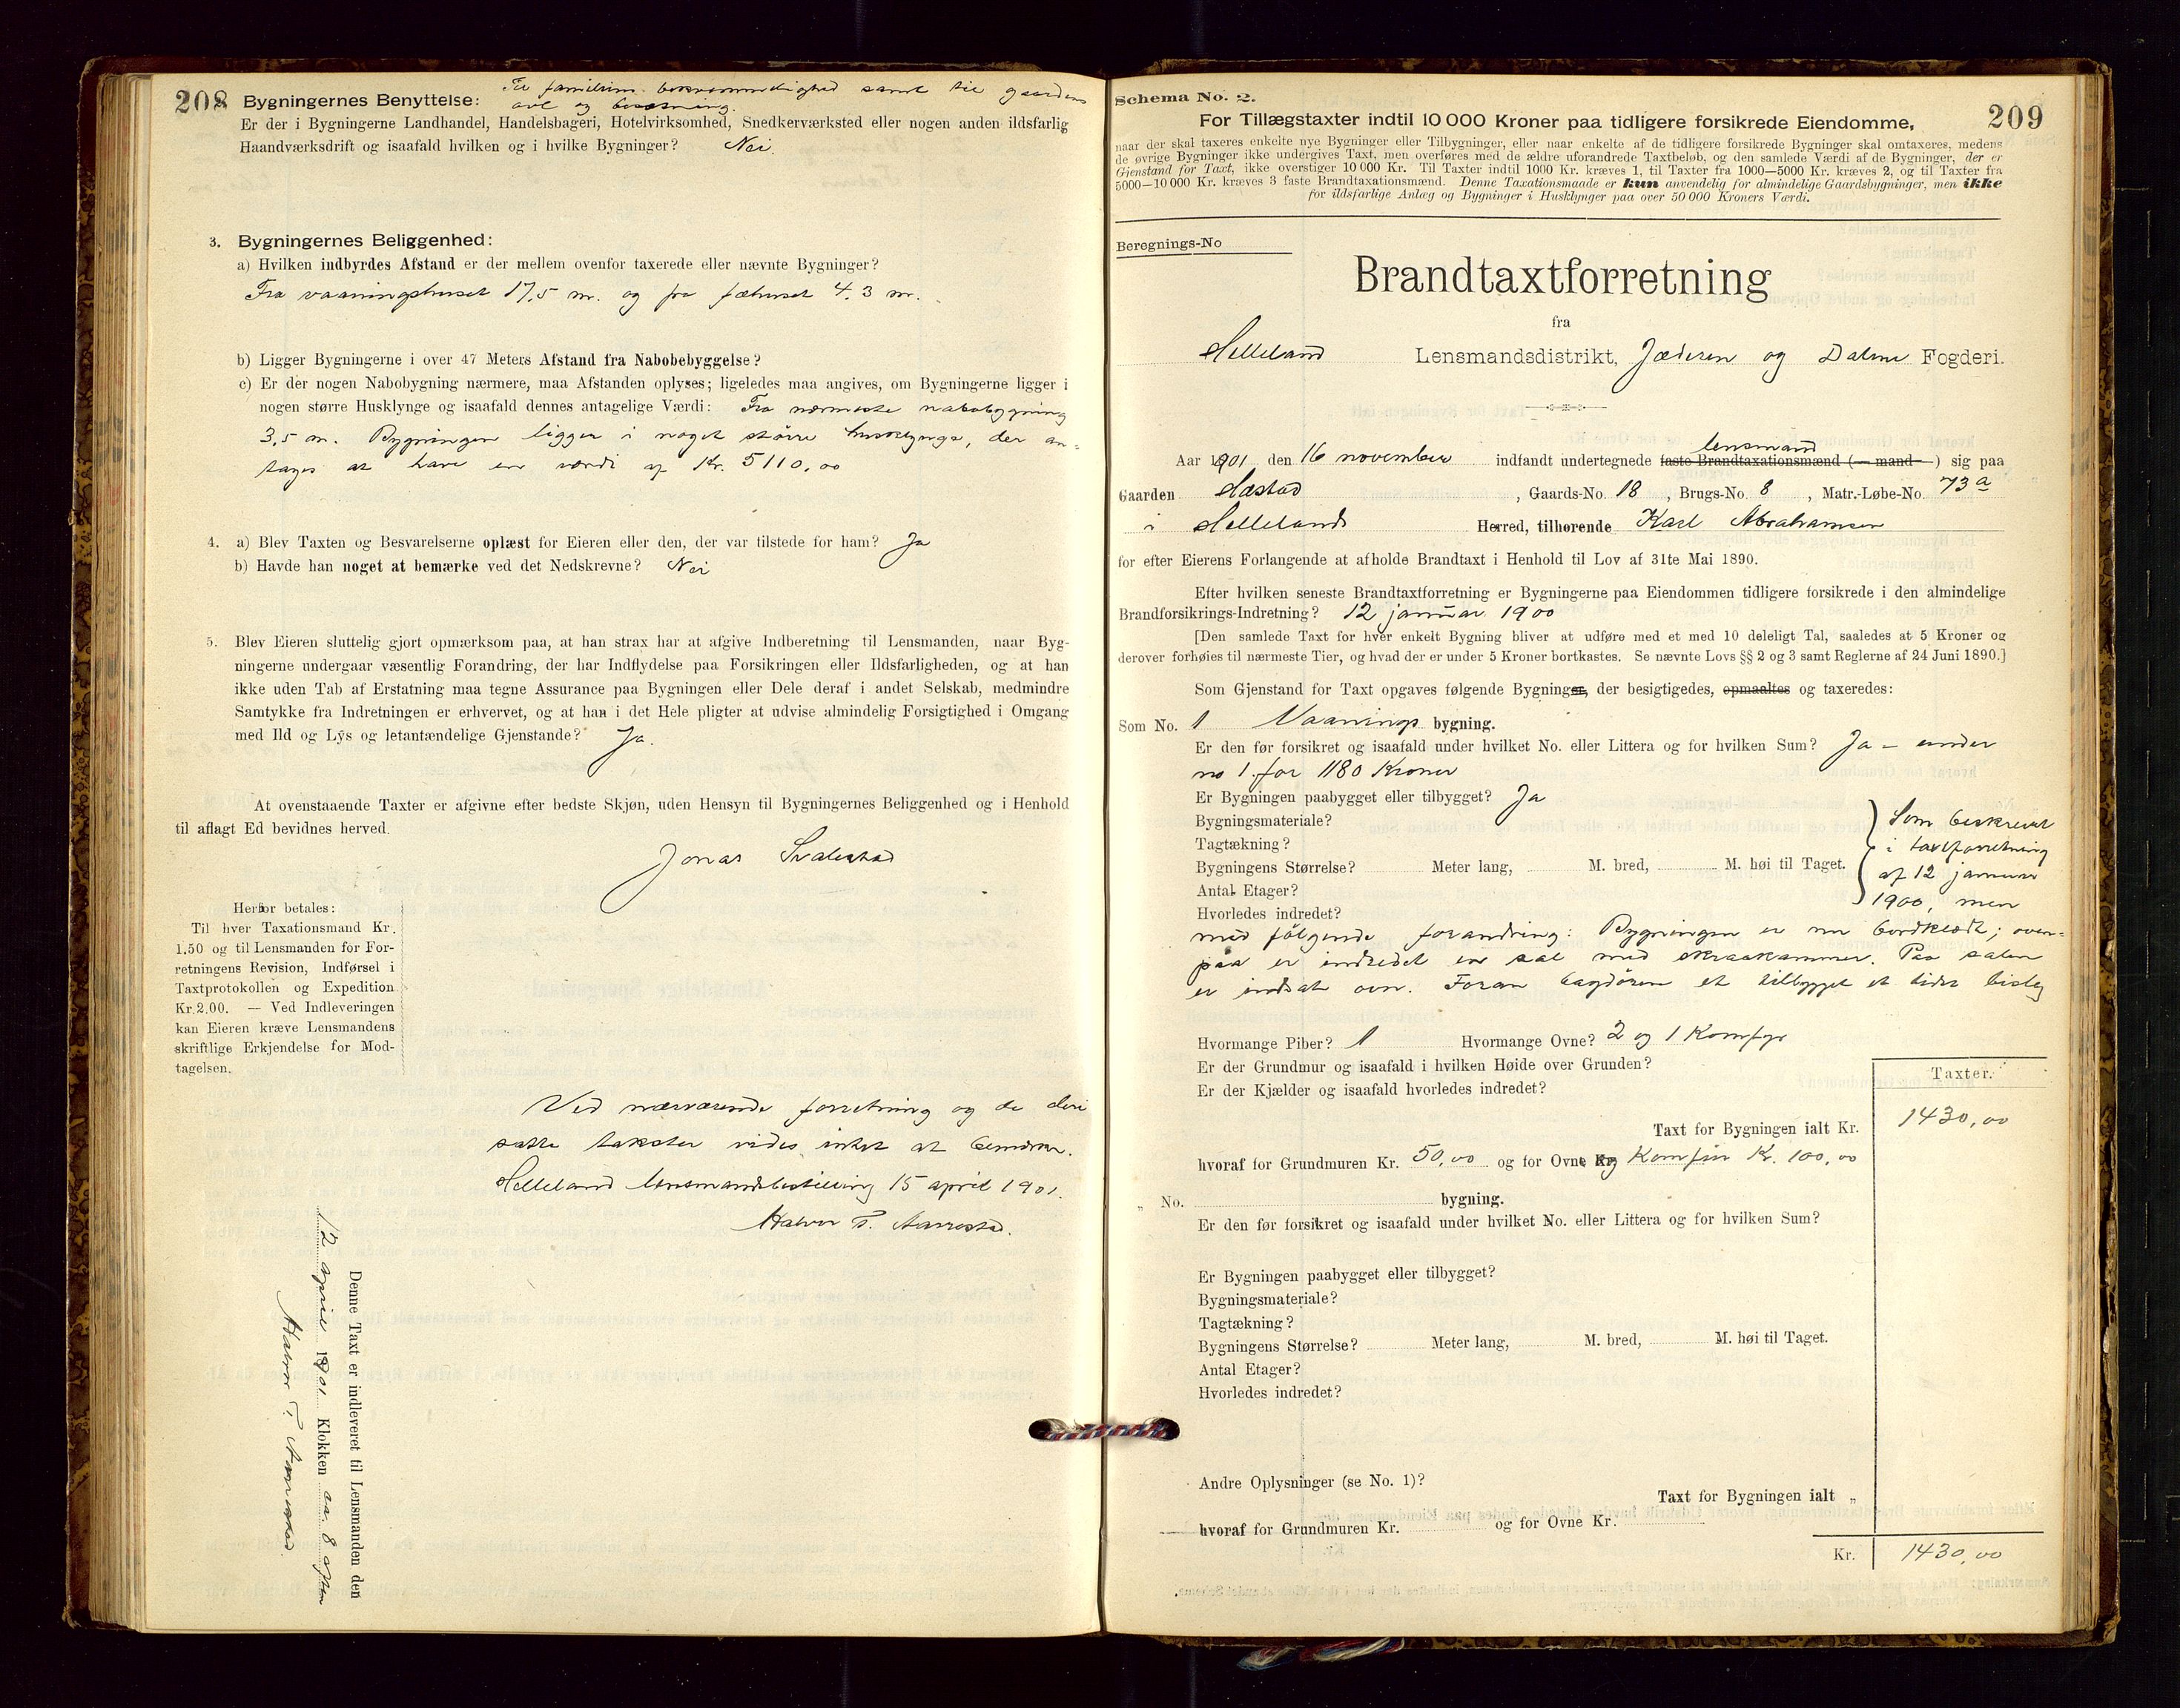 208 Bygningernes Benyttelse: Til familiens bekvemmelighed samt til gaardens
avl og besætning.
Er der i Bygningerne Landhandel, Handelsbageri, Hotelvirksomhed, Snedkerværksted eller nogen anden ildsfarlig
Haandværksdrift og isaafald hvilken og i hvilke Bygninger? Nei.
3. Bygningernes Beliggenhed:
a) Hvilken indbyrdes Afstand er der mellem ovenfor taxerede eller nævnte Bygninger?
Fra vaaningshuset 17,5 m. og fra fæhuset 4,3 m.
b) Ligger Bygningerne i over 47 Meters Afstand fra Nabobebyggelse?
c) Er der nogen Nabobygning nærmere, maa Afstanden oplyses; ligeledes maa angives, om Bygningerne ligger i
nogen større Husklynge og isaafald dennes antagelige Værdi: Fra nærmeste nabobygning
3,5 m. Bygningen ligger i noget större husklynge, der an-
tages at have en værdi af Kr. 5110,00
4. a) Blev Taxten og Besvarelserne oplæst for Eieren eller den, der var tilstede for ham? Ja
b) Havde han noget at bemærke ved det Nedskrevne? Nei
5. Blev Eieren sluttelig gjort opmærksom paa, at han strax har at afgive Indberetning til Lensmanden, naar Byg-
ningerne undergaar væsentlig Forandring, der har Indflydelse paa Forsikringen eller Ildsfarligheden, og at han
ikke uden Tab af Erstatning maa tegne Assurance paa Bygningen eller Dele deraf i andet Selskab, medmindre
Samtykke fra Indretningen er erhvervet, og at han i det Hele pligter at udvise almindelig Forsigtighed i Omgang
med Ild og Lys og letantændelige Gjenstande? Ja.
At ovenstaaende Taxter er afgivne efter bedste Skjøn, uden Hensyn til Bygningernes Beliggenhed og i Henhold
til aflagt Ed bevidnes herved.
Jonas Svalestad
Herfor betales:
Til hver Taxationsmand Kr.
1.50 og til Lensmanden for For-
retningens Revision, Indførsel i
Taxtprotokollen og Expedition
Kr. 2.00. — Ved Indleveringen
kan Eieren kræve Lensmandens
skriftlige Erkjendelse for Mod-
tagelsen.
Ved nærværende forretning og de deri
satte takster vides intet at bemærke.
Helleland lensmandsbestilling 15 april 1901.
Halvor T. Aarrestad.
Denne Taxt er indleveret til Lensmanden den
12 april 1901 Klokken ca. 8 aften
Halvor T. Aarrestad.
Schema No. 2.
209
For Tillægstaxter indtil 10 000 Kroner paa tidligere forsikrede Eiendomme,
naar der skal taxeres enkelte nye Bygninger eller Tilbygninger, eller naar enkelte af de tidligere forsikrede Bygninger skal omtaxeres, medens
de øvrige Bygninger ikke undergives Taxt, men overføres med de ældre uforandrede Taxtbeløb, og den samlede Værdi af de Bygninger, der er
Gjenstand for Taxt, ikke overstiger 10 000 Kr. Til Taxter indtil 1000 Kr. kræves 1, til Taxter fra 1000—5000 Kr. kræves 2, og til Taxter fra
5000—10 000 Kr. kræves 3 faste Brandtaxationsmænd. Denne Taxationsmaade er kun anvendelig for almindelige Gaardsbygninger, men ikke
for ildsfarlige Anlæg og Bygninger i Husklynger paa over 50 000 Kroners Værdi.
Beregnings-No
Brandtaxtforretning
fra
Helleland Lensmandsdistrikt, Jæderen og Dalene Fogderi.
lensmand
Aar 1901 den 16 november indfandt undertegnede faste Brandtaxationsmænd (— mand —) sig paa
Gaarden Sæstad, Gaards-No. 18, Brugs-No. 8, Matr.-Løbe-No. 73a
i Hellelands Herred, tilhørende Karl Abrahamsen
for efter Eierens Forlangende at afholde Brandtaxt i Henhold til Lov af 31te Mai 1890.
Efter hvilken seneste Brandtaxtforretning er Bygningerne paa Eiendommen tidligere forsikrede i den almindelige
Brandforsikrings-Indretning? 12 januar 1900
[Den samlede Taxt for hver enkelt Bygning bliver at udføre med et med 10 deleligt Tal, saaledes at 5 Kroner og
derover forhøies til nærmeste Tier, og hvad der er under 5 Kroner bortkastes. Se nævnte Lovs §§ 2 og 3 samt Reglerne af 24 Juni 1890.]
Som Gjenstand for Taxt opgaves følgende Bygninger, der besigtigedes, opmaaltes og taxeredes:
Som No. 1 Vaanings bygning.
Er den før forsikret og isaafald under hvilket No. eller Littera og for hvilken Sum? Ja – under
no 1. for 1180 Kroner
Er Bygningen paabygget eller tilbygget? Ja
Bygningsmateriale? Som beskrevet
Tagtækning? i taxtforretning
Bygningens Størrelse? Meter lang, M. bred, M. høi til Taget. af 12 januar
Antal Etager? 1900, men
Hvorledes indredet?
med følgende forandring: Bygningen er nu bordklædt; oven-
paa er indredet en sal med skraakammer. Paa salen
er indsat ovn. Foran bagdören et tilbygget et lidet bislag
Hvormange Piber? 1 Hvormange Ovne? 2 og 1 Komfyr
Er der Grundmur og isaafald i hvilken Høide over Grunden?
Er der Kjælder og isaafald hvorledes indredet?
Taxter.
Taxt for Bygningen ialt Kr. 1430,00
hvoraf for Grundmuren Kr. 50,00 og for Ovne og Komfür Kr. 100,00
„ No. bygning.
Er den før forsikret og isaafald under hvilket No. eller Littera og for hvilken Sum?
Er Bygningen paabygget eller tilbygget?
Bygningsmateriale?
Tagtækning?
Bygningens Størrelse? Meter lang, M. bred, M. høi til Taget.
Antal Etager?
Hvorledes indredet?
Andre Oplysninger (se No. 1)?
Taxt for Bygningen ialt „
hvoraf for Grundmuren Kr. og for Ovne Kr.
Kr. 1430,00